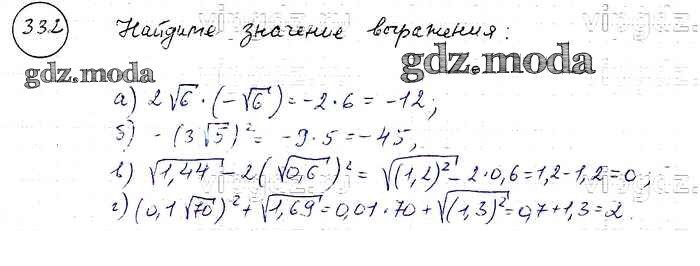 332 Найдите значение выражения:
gdz.moda gdz.moda
а) 2√6 · (-√6) = -2 · 6 = -12;
б) -(3√5)² = -9 · 5 = -45;
в) √1,44 - 2(√0,6)² = √(1,2)² - 2 · 0,6 = 1,2 - 1,2 = 0;
г) (0,1√70)² + √1,69 = 0,01 · 70 + √(1,3)² = 0,7 + 1,3 = 2.